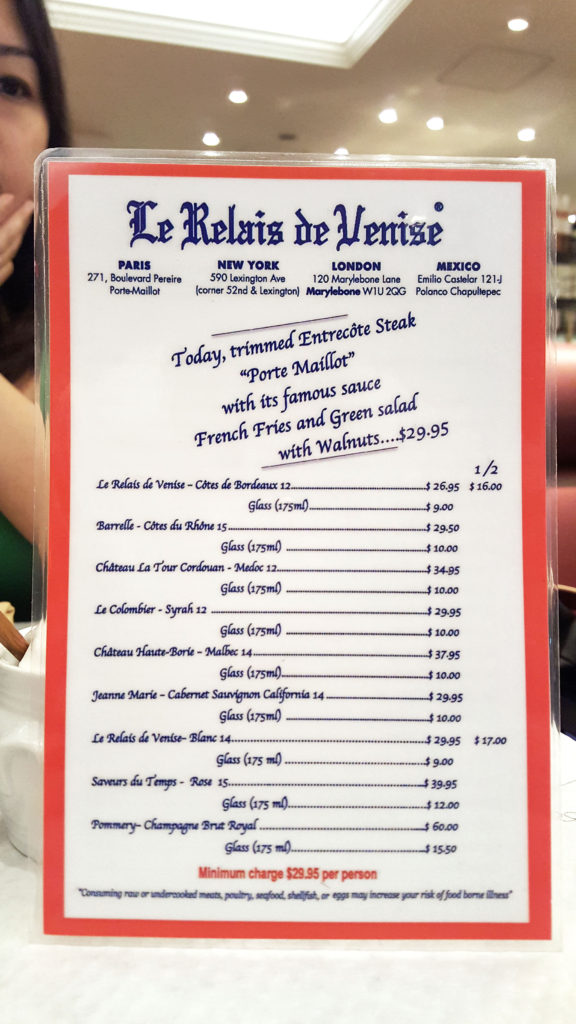 Le Relais de Venise®
PARIS NEW YORK LONDON MEXICO
271, Boulevard Pereire 590 Lexington Ave 120 Marylebone Lane Emilio Castelar 121-J
Porte-Maillot (corner 52nd & Lexington) Marylebone W1U 2QG Polanco Chapultepec
Today, trimmed Entrecôte Steak
"Porte Maillot"
with its famous sauce
French Fries and Green salad
with Walnuts....$29.95
1/2
Le Relais de Venise – Côtes de Bordeaux 12 $ 26.95 $ 16.00
Glass (175ml) $ 9.00
Barrelle - Côtes du Rhône 15 $ 29.50
Glass (175ml) $ 10.00
Château La Tour Cordouan - Medoc 12 $ 34.95
Glass (175ml) $ 10.00
Le Colombier - Syrah 12 $ 29.95
Glass (175ml) $ 10.00
Château Haute-Borie – Malbec 14 $ 37.95
Glass (175ml) $ 10.00
Jeanne Marie – Cabernet Sauvignon California 14 $ 29.95
Glass (175ml) $ 10.00
Le Relais de Venise– Blanc 14 $ 29.95 $ 17.00
Glass (175 ml) $ 9.00
Saveurs du Temps - Rose 15 $ 39.95
Glass (175 ml) $ 12.00
Pommery– Champagne Brut Royal $ 60.00
Glass (175 ml) $ 15.50
Minimum charge $29.95 per person
"Consuming raw or undercooked meats, poultry, seafood, shellfish, or eggs may increase your risk of food borne illness"